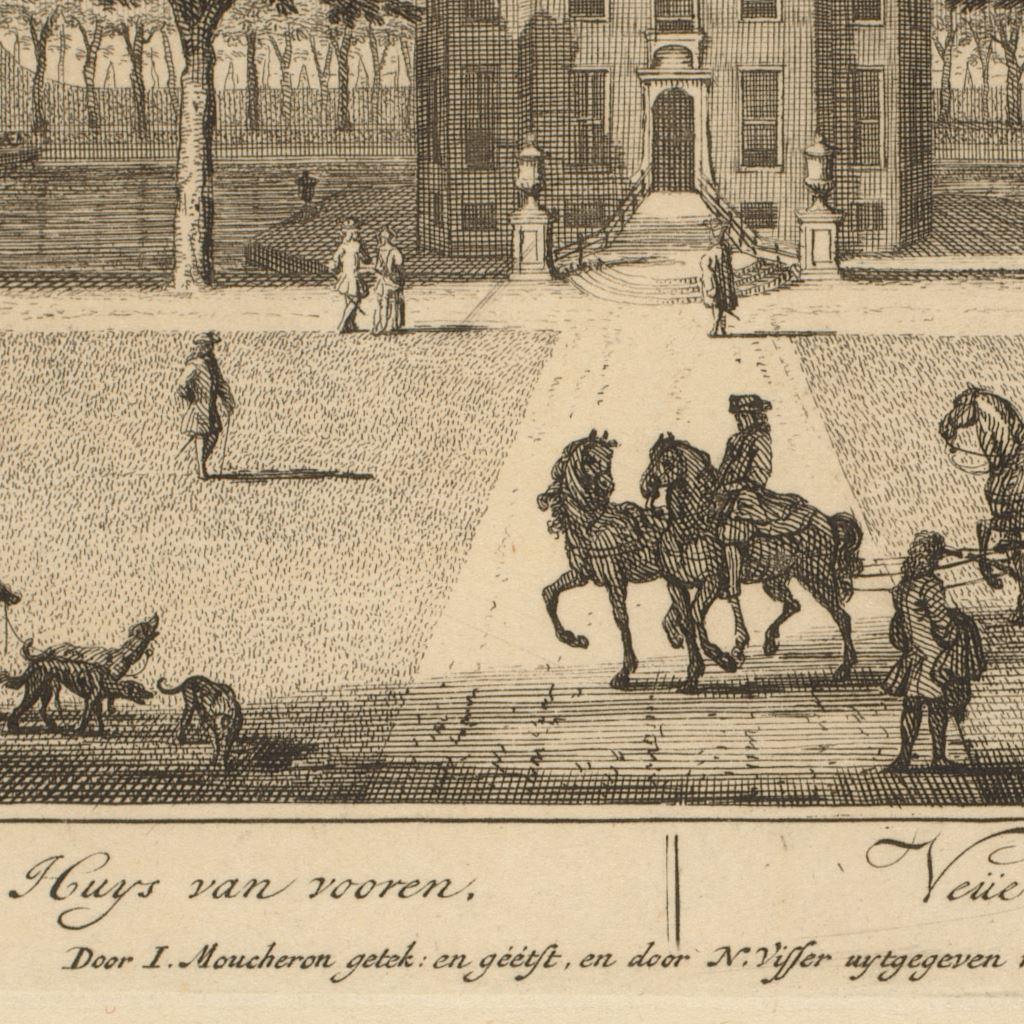 Huys van vooren.
Veüe
Door I. Moucheron getek: en gëëtst, en door N. Visser uytgegeven